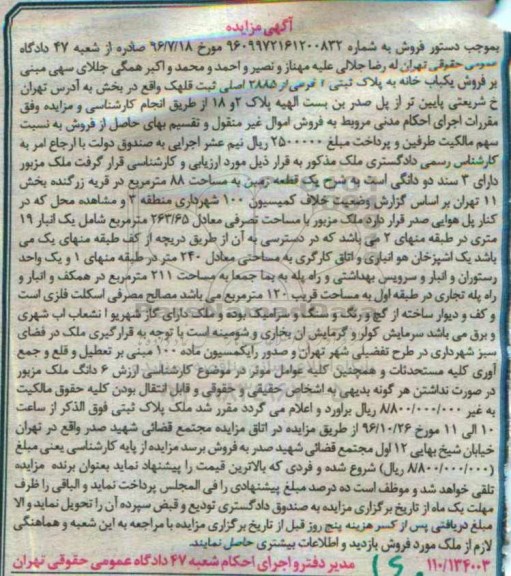 آگهی مزایده
بموجب دستور فروش به شماره ۹۶۰۹۹۷۲۱۶۱۲۰۰۸۳۲ مورخ ۹۶/۷/۱۸ صادره از شعبه ۴۷ دادگاه
عمومی حقوقی تهران له رضا جلالی علیه مهناز و نصیر و احمد و محمد و اکبر همگی جلالای سهی مبنی
بر فروش یکباب خانه به پلاک ثبتی ۲ فرعی از ۳۸۸۵ اصلی ثبت قلهک واقع در بخش به آدرس تهران
خ شریعتی پایین تر از پل صدر بن بست الهیه پلاک ۲و ۱۸ از طریق انجام کارشناسی و مزایده وفق
مقررات اجرای احکام مدنی مربوط به فروش اموال غیر منقول و تقسیم بهای حاصل از فروش به نسبت
سهم مالکیت طرفین و پرداخت مبلغ ۲۵۰۰۰۰۰ ریال نیم عشر اجرایی به صندوق دولت با ارجاع امر به
کارشناس رسمی دادگستری ملک مذکور به قرار ذیل مورد ارزیابی و کارشناسی قرار گرفت ملک مزبور
دارای ۳ سند دو دانگی است به شرح یک قطعه زمین به مساحت ۸۸ مترمربع در قریه زرگنده بخش
۱۱ تهران بر اساس گزارش وضعیت خلاف کمیسیون ۱۰۰ شهرداری منطقه ۳ و مشاهده محل که در
کنار پل هوایی صدر قرار دارد ملک مزبور با مساحت تصرفی معادل ۲۶۳/۶۵ مترمربع شامل یک انبار ۱۹
متری در طبقه منهای ۲ می باشد که در دسترسی به آن از طریق دریچه از کف طبقه منهای یک می
باشد یک اشپزخان هو انباری و اتاق کارگری به مساحتی معادل ۲۴۰ متر در طبقه منهای ۱ و یک واحد
رستوران و انبار و سرویس بهداشتی و راه پله به بما جمعا به مساحت ۲۱۱ مترمربع در همکف و انبار و
راه پله تجاری در طبقه اول به مساحت قریب ۱۲۰ مترمربع می باشد مصالح مصرفی اسکلت فلزی است
و کف و دیوار ساخته از گچ و رنگ و سنگ و سرامیک بوده و ملک دارای گاز شهریو ا نشعاب اب شهری
و برق می باشد سرمایش کولر و گرمایش ان بخاری و شومینه است با توجه به قرارگیری ملک در فضای
سبز شهرداری در طرح تفضیلی شهر تهران و صدور رایکمسیون ماده ۱۰۰ مبنی بر تعطیل و قلع و جمع
آوری کلیه مستحدثات و همچنین کلیه عوامل موثر در موضوع کارشناسی ارزش ۶ دانگ ملک مزبور
در صورت نداشتن هر گونه بدیهی به اشخاص حقیقی و حقوقی و قابل انتقال بودن کلیه حقوق مالکیت
به غیر ۸/۸۰۰/۰۰۰/۰۰۰ ریال براورد و اعلام می گردد مقرر شد ملک پلاک ثبتی فوق الذکر از ساعت
۱۰ الی ۱۱ مورخ ۹۶/۱۰/۲۶ از طریق مزایده در اتاق مزایده مجتمع قضائی شهید صدر واقع در تهران
خیابان شیخ بهایی ۱۲ اول مجتمع قضائی شهید صدر به فروش برسد مزایده از پایه کارشناسی یعنی مبلغ
(۸/۸۰۰/۰۰۰/۰۰۰ ریال) شروع شده و فردی که بالاترین قیمت را پیشنهاد نماید بعنوان برنده مزایده
تلقی خواهد شد و موظف است ده درصد مبلغ پیشنهادی را فی المجلس پرداخت نماید و الباقی را ظرف
مهلت یک ماه از تاریخ برگزاری مزایده به صندوق دادگستری تودیع و قبض سپرده آن را تحویل نماید والا
مبلغ دریافتی پس از کسر هزینه پنج روز قبل از تاریخ برگزاری مزایده با مراجعه به این شعبه و هماهنگی
لازم از ملک مورد فروش بازدید و اطلاعات بیشتری حاصل نمایند.
۱۱۰/۱۳۴۰۰۳ مدیر دفتر و اجرای احکام شعبه ۴۷ دادگاه عمومی حقوقی تهران